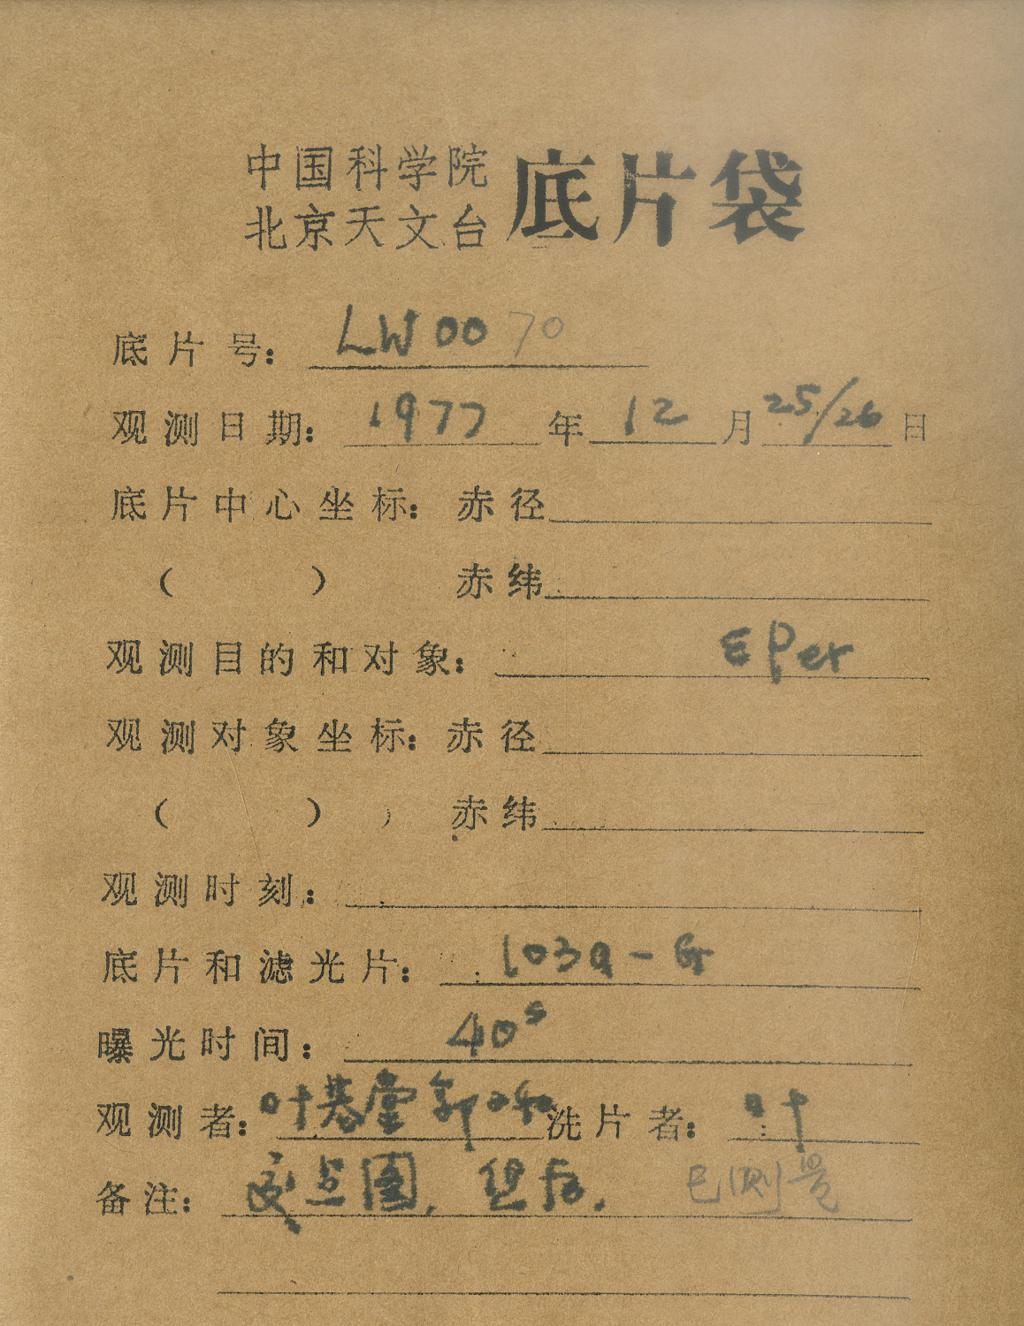 中国科学院
北京天文台
底片袋
底片号: LW0070
观测日期: 1977年12月25/26日
底片中心坐标: 赤径
( ) 赤纬
观测目的和对象: ε Per
观测对象坐标: 赤径
( ) 赤纬
观测时刻:
底片和滤光片: 103a-G
曝光时间: 40s
观测者: 叶 堂 郭 洗片者: 叶
备注: 圆, 已测量